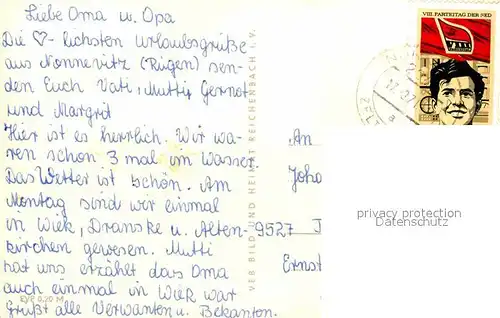 Liebe Oma u. Opa
Die ♡-lichsten Urlaubsgrüße
aus Nonnevitz (Rügen) sen-
den Euch Vati, Mutti, Gernot
und Margrit
Hier ist es herrlich. Wir wa-
ren schon 3 mal im Wasser.
Das Wetter ist schön. Am
Montag sind wir einmal
in Wiek, Dranske u. Alten-
kirchen gewesen. Mutti
hat uns erzählt das Oma
auch einmal in Wiek war
Grüßt alle Verwanten u. Bekanten.
EVP 0,20 M
VEB BILD UND HEIMAT REICHENBACH i. V.
VIII. PARTEITAG DER SED
VIII
An
Joha
9527 J
Ernst
privacy protection
Datenschutz